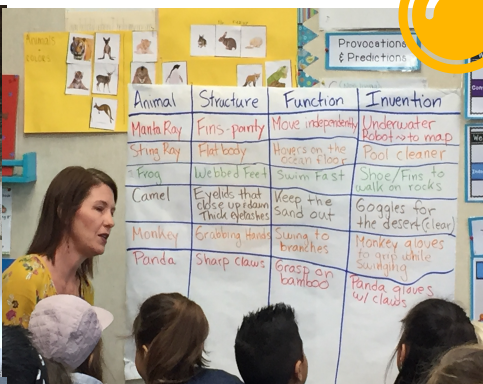 Provocations
& Predictions
Animal Structure Function Invention
Manta Ray Fins-pointy Move independently Underwater
Robot→to map
Sting Ray Flat body Hovers on the
ocean floor Pool cleaner
Frog Webbed Feet Swim Fast Shoe/Fins to
walk on rocks
Camel Eyelids that
close up+down
Thick eyelashes Keep the
Sand out Goggles for
the desert (clear)
Monkey Grabbing Hands Swing to
branches Monkey gloves
to grip while
Swinging
Panda Sharp claws Grasp on
bamboo Panda gloves
w/ claws